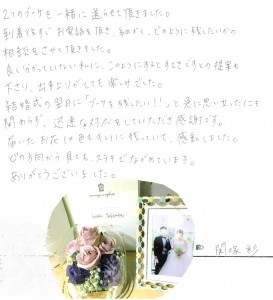 2つのブーケを一緒に送らせて頂きました。
到着後すぐお電話を頂き、細かく、どのように残したいかの
相談をさせて頂きました。
良く分かっていない私に、このようにするとすてきですとの提案も
下さり、出来上りがとても楽しみでした。
結婚式の翌日に「ブーケを残したい!!」って急に思い立ったにも
関わらず、迅速な対応をしていただき感謝です。
届いたお花は色もキレイに残っていて、感動しました。
どの方向から見ても、ステキでながめています。
ありがとうございました。
関塚 彩